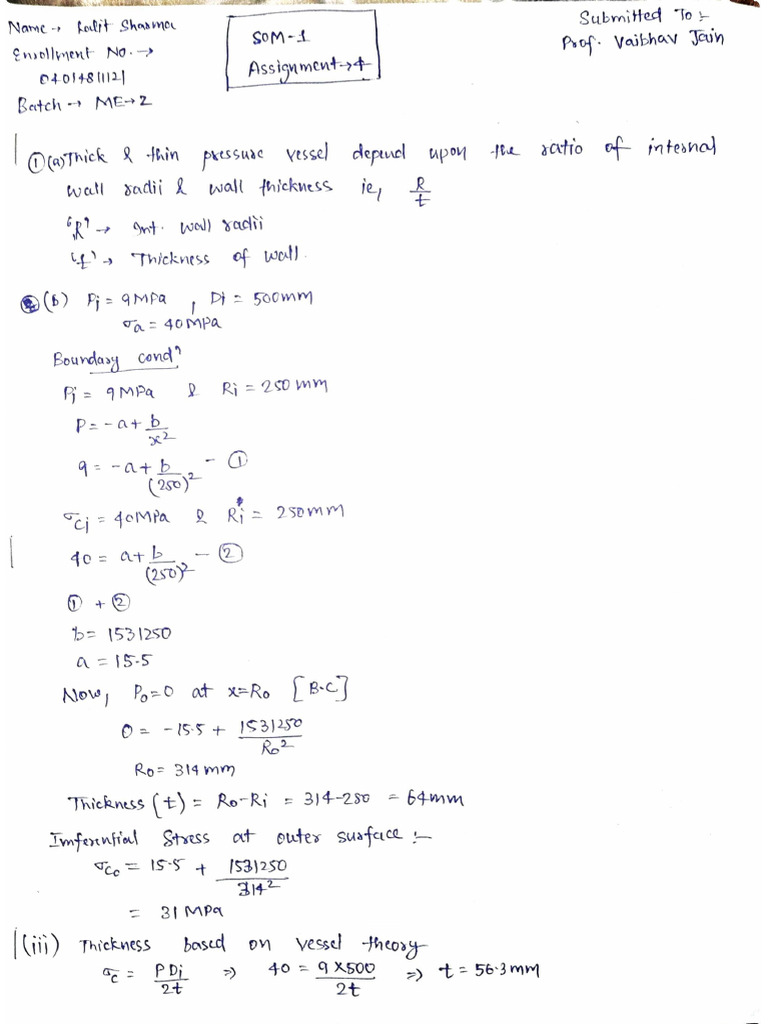 Name → Lalit Sharma
Enrollment No. →
04014811121
Batch → ME→2
SOM-1
Assignment→4
Submitted To :-
Prof. Vaibhav Jain
① (a) Thick & thin pressure vessel depend upon the ratio of internal
wall radii & wall thickness ie, R/t
'R' → Int. wall radii
't' → Thickness of wall.
(b) Pi = 9MPa , Di = 500mm
σa = 40MPa
Boundary condⁿ
Pi = 9MPa & Ri = 250 mm
P = -a + b/x²
9 = -a + b/(250)² - ①
σci = 40MPa & Ri = 250mm
40 = a + b/(250)² - ②
① + ②
b = 1531250
a = 15.5
Now, Po=0 at x=Ro [B.C]
0 = -15.5 + 1531250/Ro²
Ro = 314 mm
Thickness (t) = Ro-Ri = 314-250 = 64mm
Imferential Stress at outer surface :-
σco = 15.5 + 1531250/314²
= 31 MPa
(iii) Thickness based on vessel theory
σc = PDi/2t ⇒ 40 = 9×500/2t ⇒ t = 56.3 mm